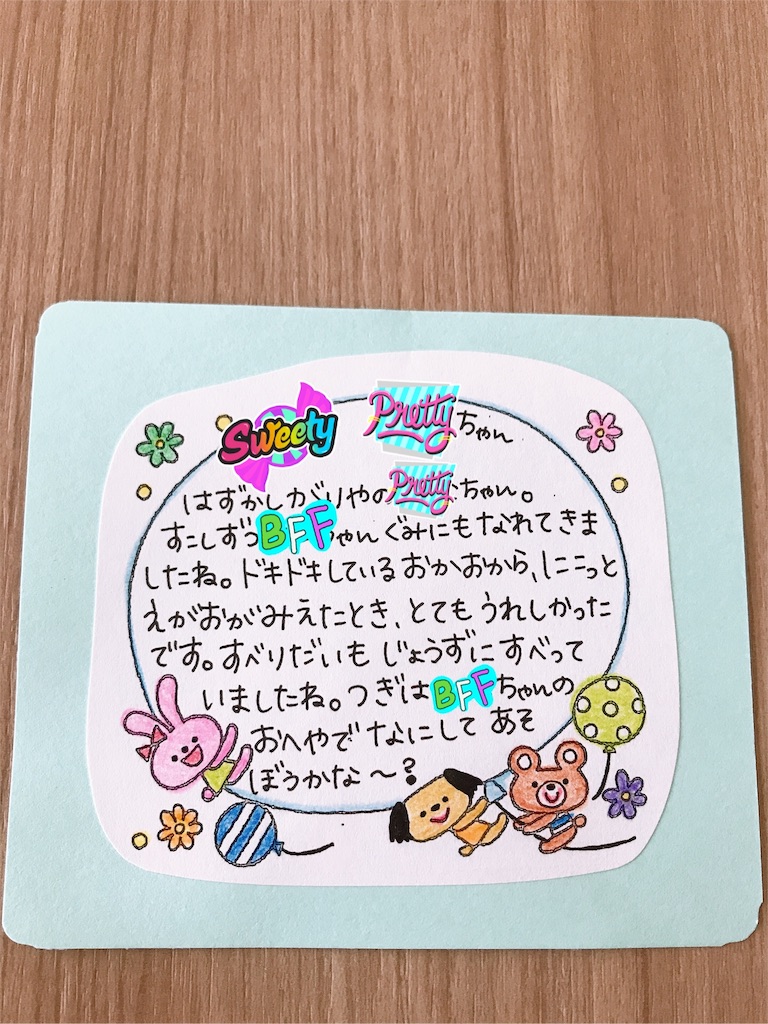 Sweety Prettyちゃん
はずかしがりやのPrettyちゃん。
すこしずつBFFちゃんぐみにもなれてきま
したね。ドキドキしているおかおから、にこっと
えがおがみえたとき、とてもうれしかった
です。すべりだいもじょうずにすべって
いましたね。つぎはBFFちゃんの
おへやでなにしてあそ
ぼうかな〜?